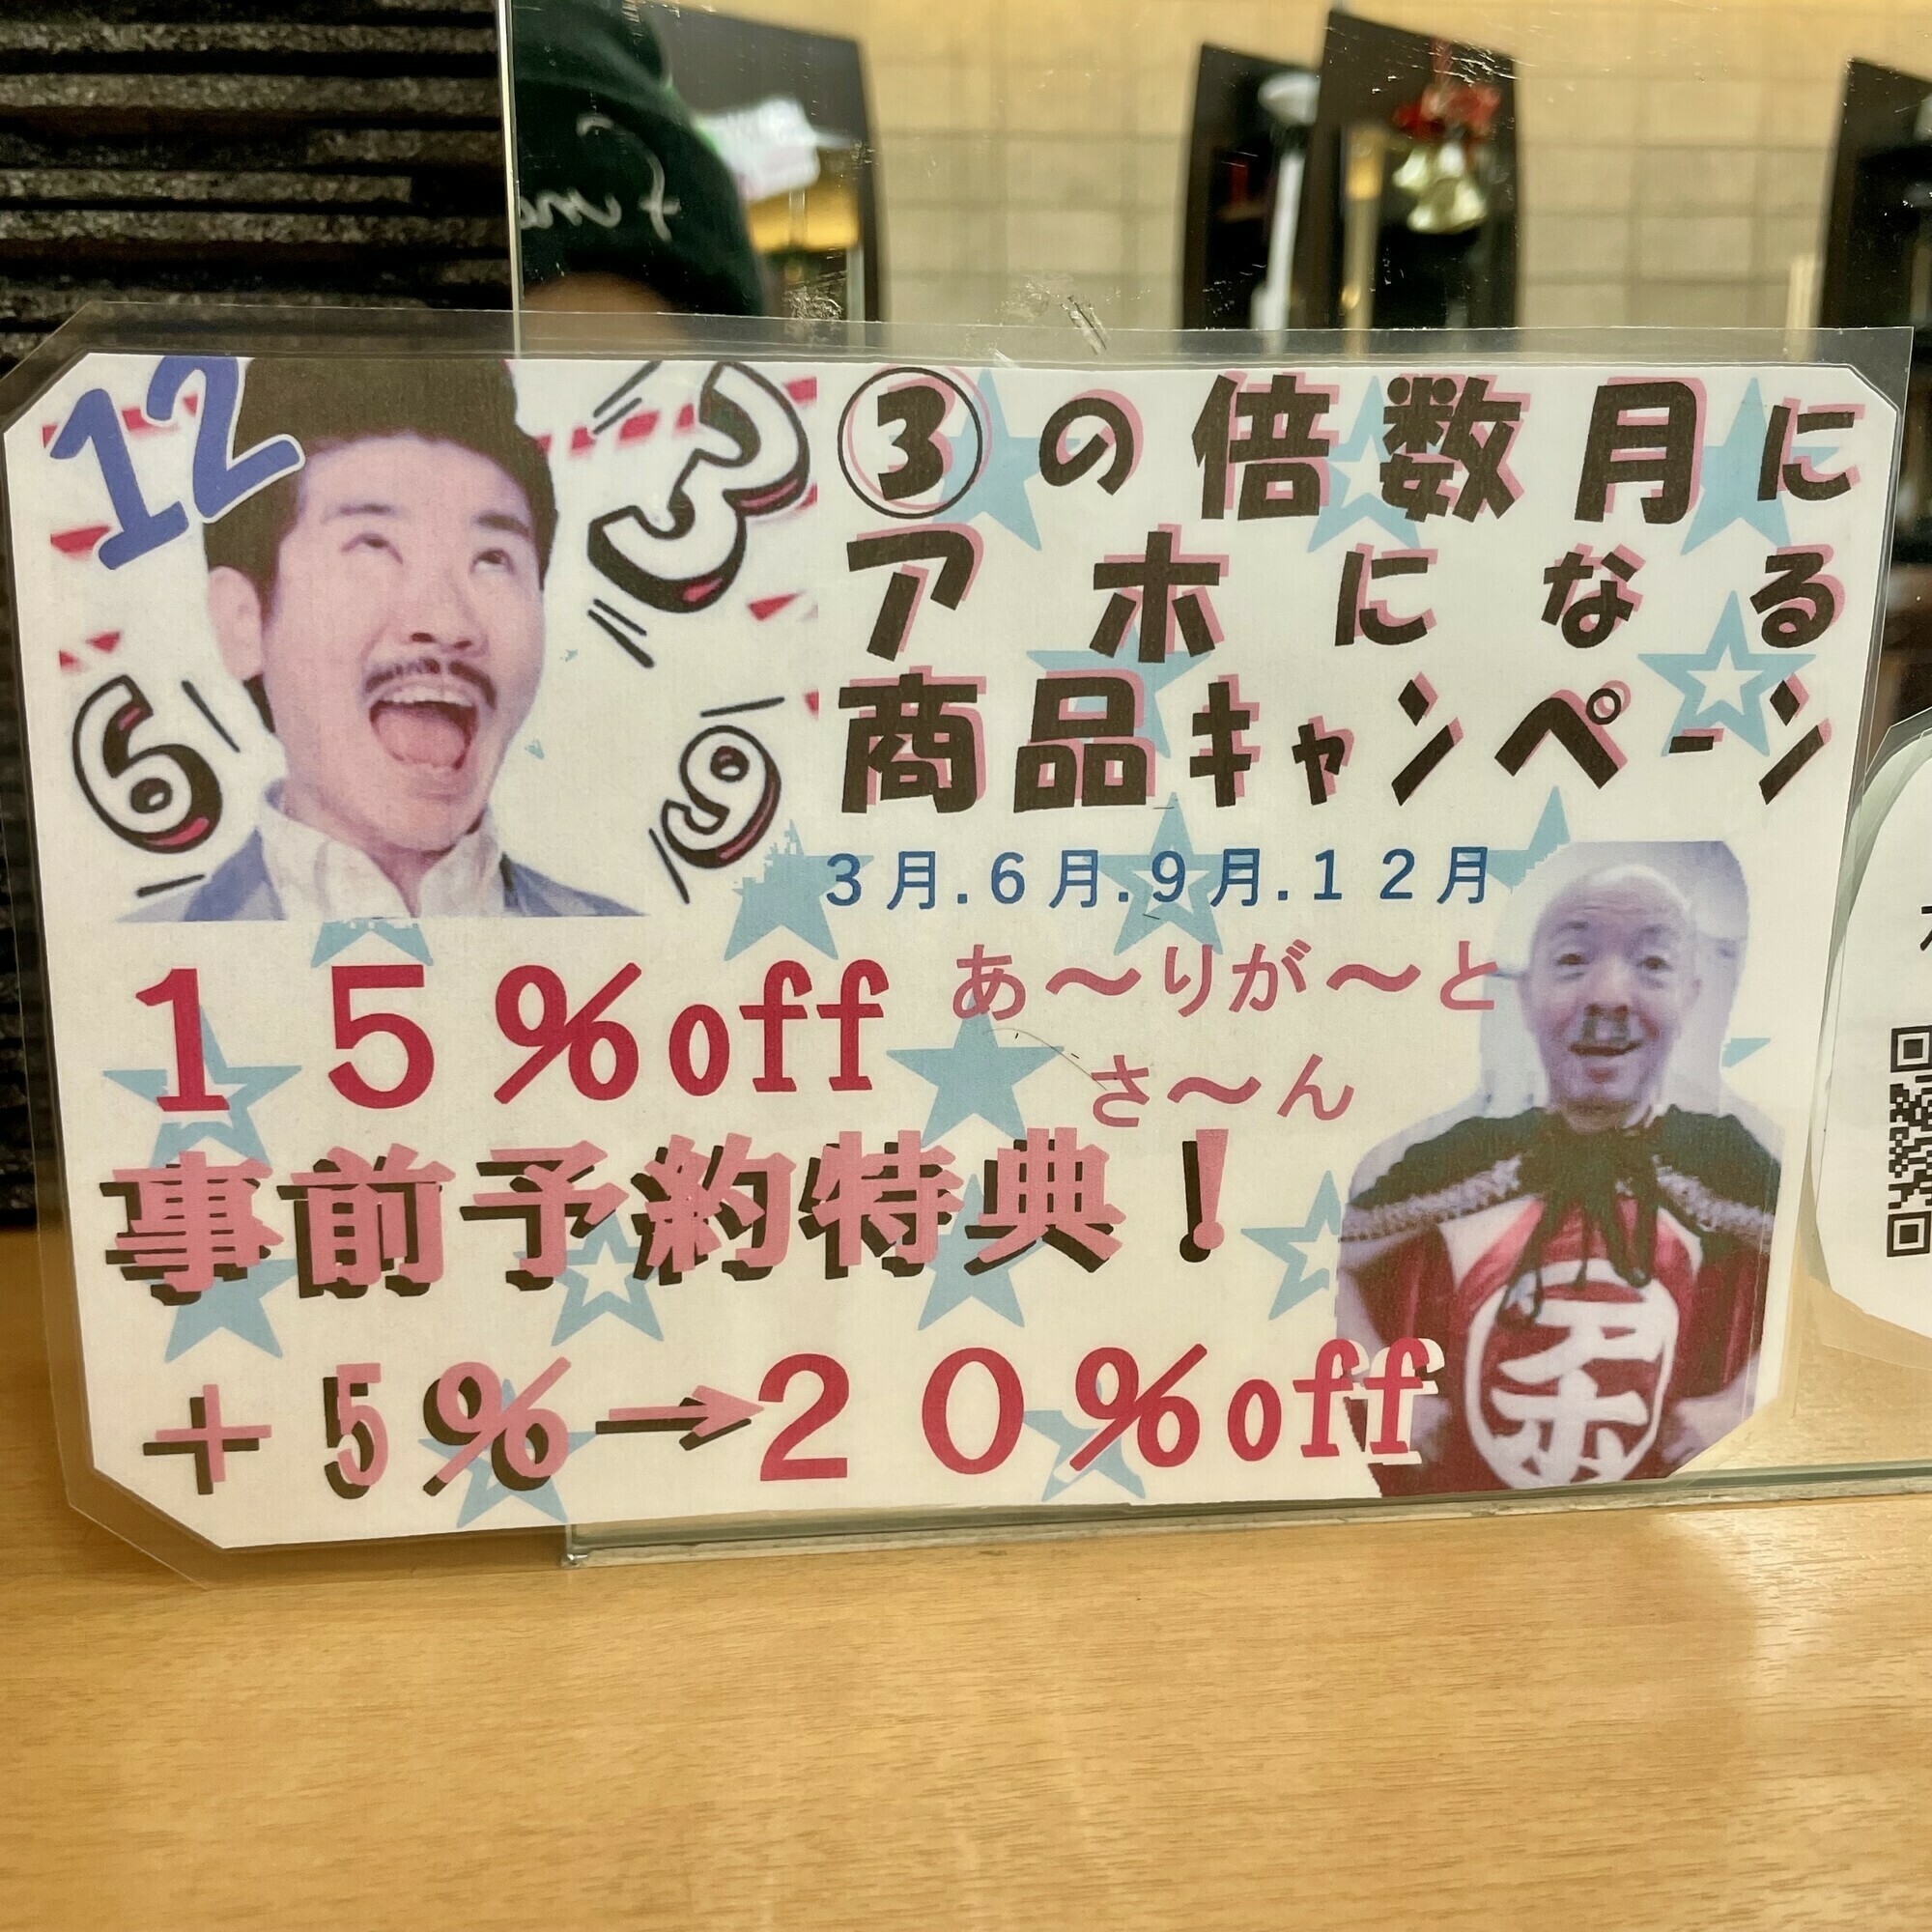 12
3
6
9
③の倍数月に
アホになる
商品キャンペーン
3月.6月.9月.12月
15%off
あ〜りが〜と
さ〜ん
事前予約特典！
+5%→20%off
アホ